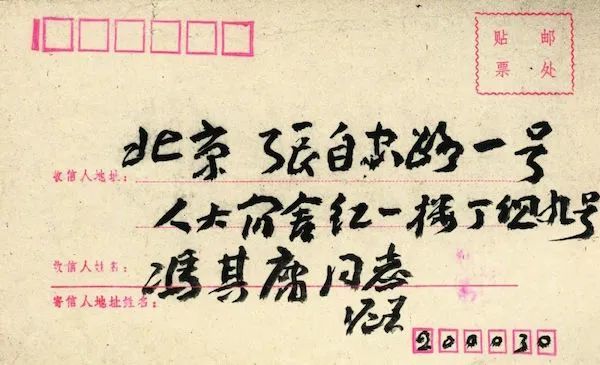 贴 邮
票 处
北京 張自忠路一号
收信人地址:
人大宿舍红一楼丁组九号
收信人姓名:
馮其庸同志
寄信人地址姓名:
200030